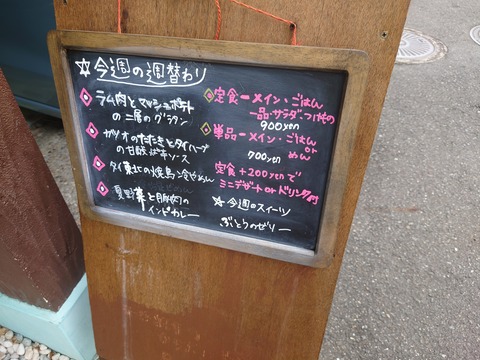 ☆今週の週替わり
ラム肉とマッシュポテト
の二層のグラタン
カツオのたたきとタイハーブ
の甘酸ぱキソース
タイ東北の焼鳥冷やめん
夏野菜と豚肉の
インドカレー
定食ーメイン・ごはん
一品・サラダ・つけもの
900yen
単品ーメイン・ごはん
or
700yen めん
定食+200yenで
ミニデザート or ドリンク付
☆今週のスイーツ
ぶどうのゼリー